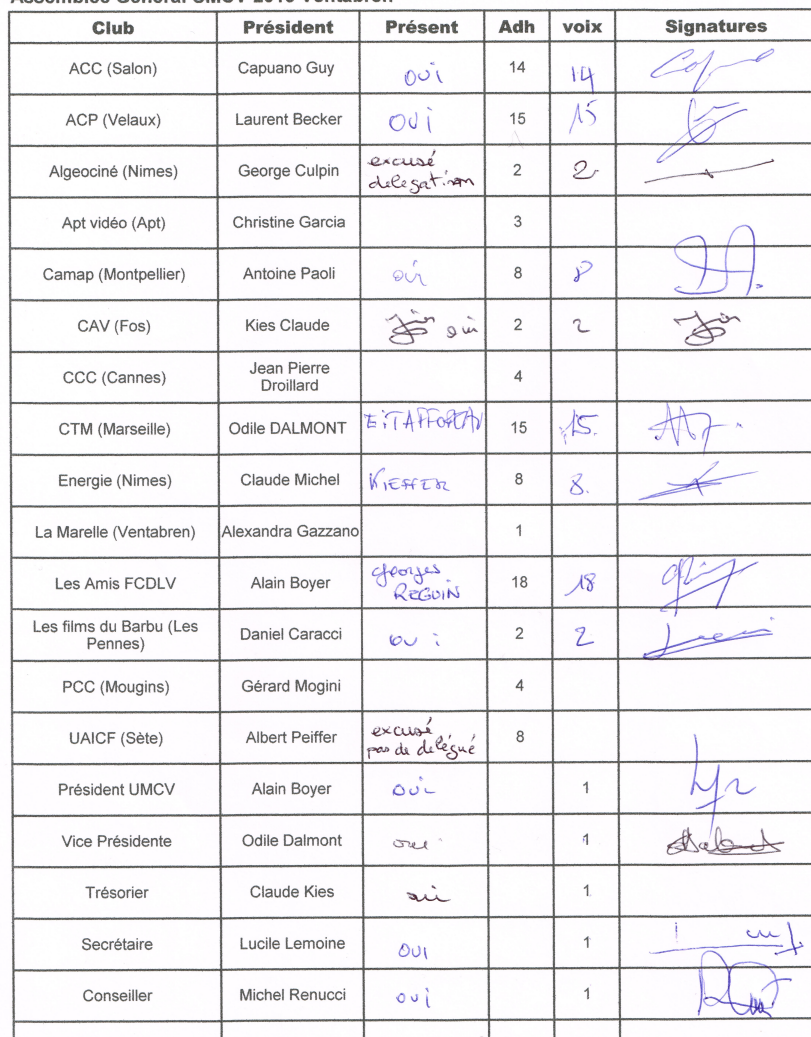 Club Président Présent Adh voix Signatures
ACC (Salon) Capuano Guy oui 14 14
ACP (Velaux) Laurent Becker OUi 15 15
Algeociné (Nimes) George Culpin excusé delegation 2 2
Apt vidéo (Apt) Christine Garcia 3
Camap (Montpellier) Antoine Paoli oui 8 8
CAV (Fos) Kies Claude oui 2 2
CCC (Cannes) Jean Pierre Droillard 4
CTM (Marseille) Odile DALMONT 15 15.
Energie (Nimes) Claude Michel KIEFFER 8 8.
La Marelle (Ventabren) Alexandra Gazzano 1
Les Amis FCDLV Alain Boyer Georges REGUIN 18 18
Les films du Barbu (Les Pennes) Daniel Caracci oui 2 2
PCC (Mougins) Gérard Mogini 4
UAICF (Sète) Albert Peiffer excusé pas de delégué 8
Président UMCV Alain Boyer oui 1
Vice Présidente Odile Dalmont oui 1
Trésorier Claude Kies oui 1
Secrétaire Lucile Lemoine OUI 1
Conseiller Michel Renucci oui 1